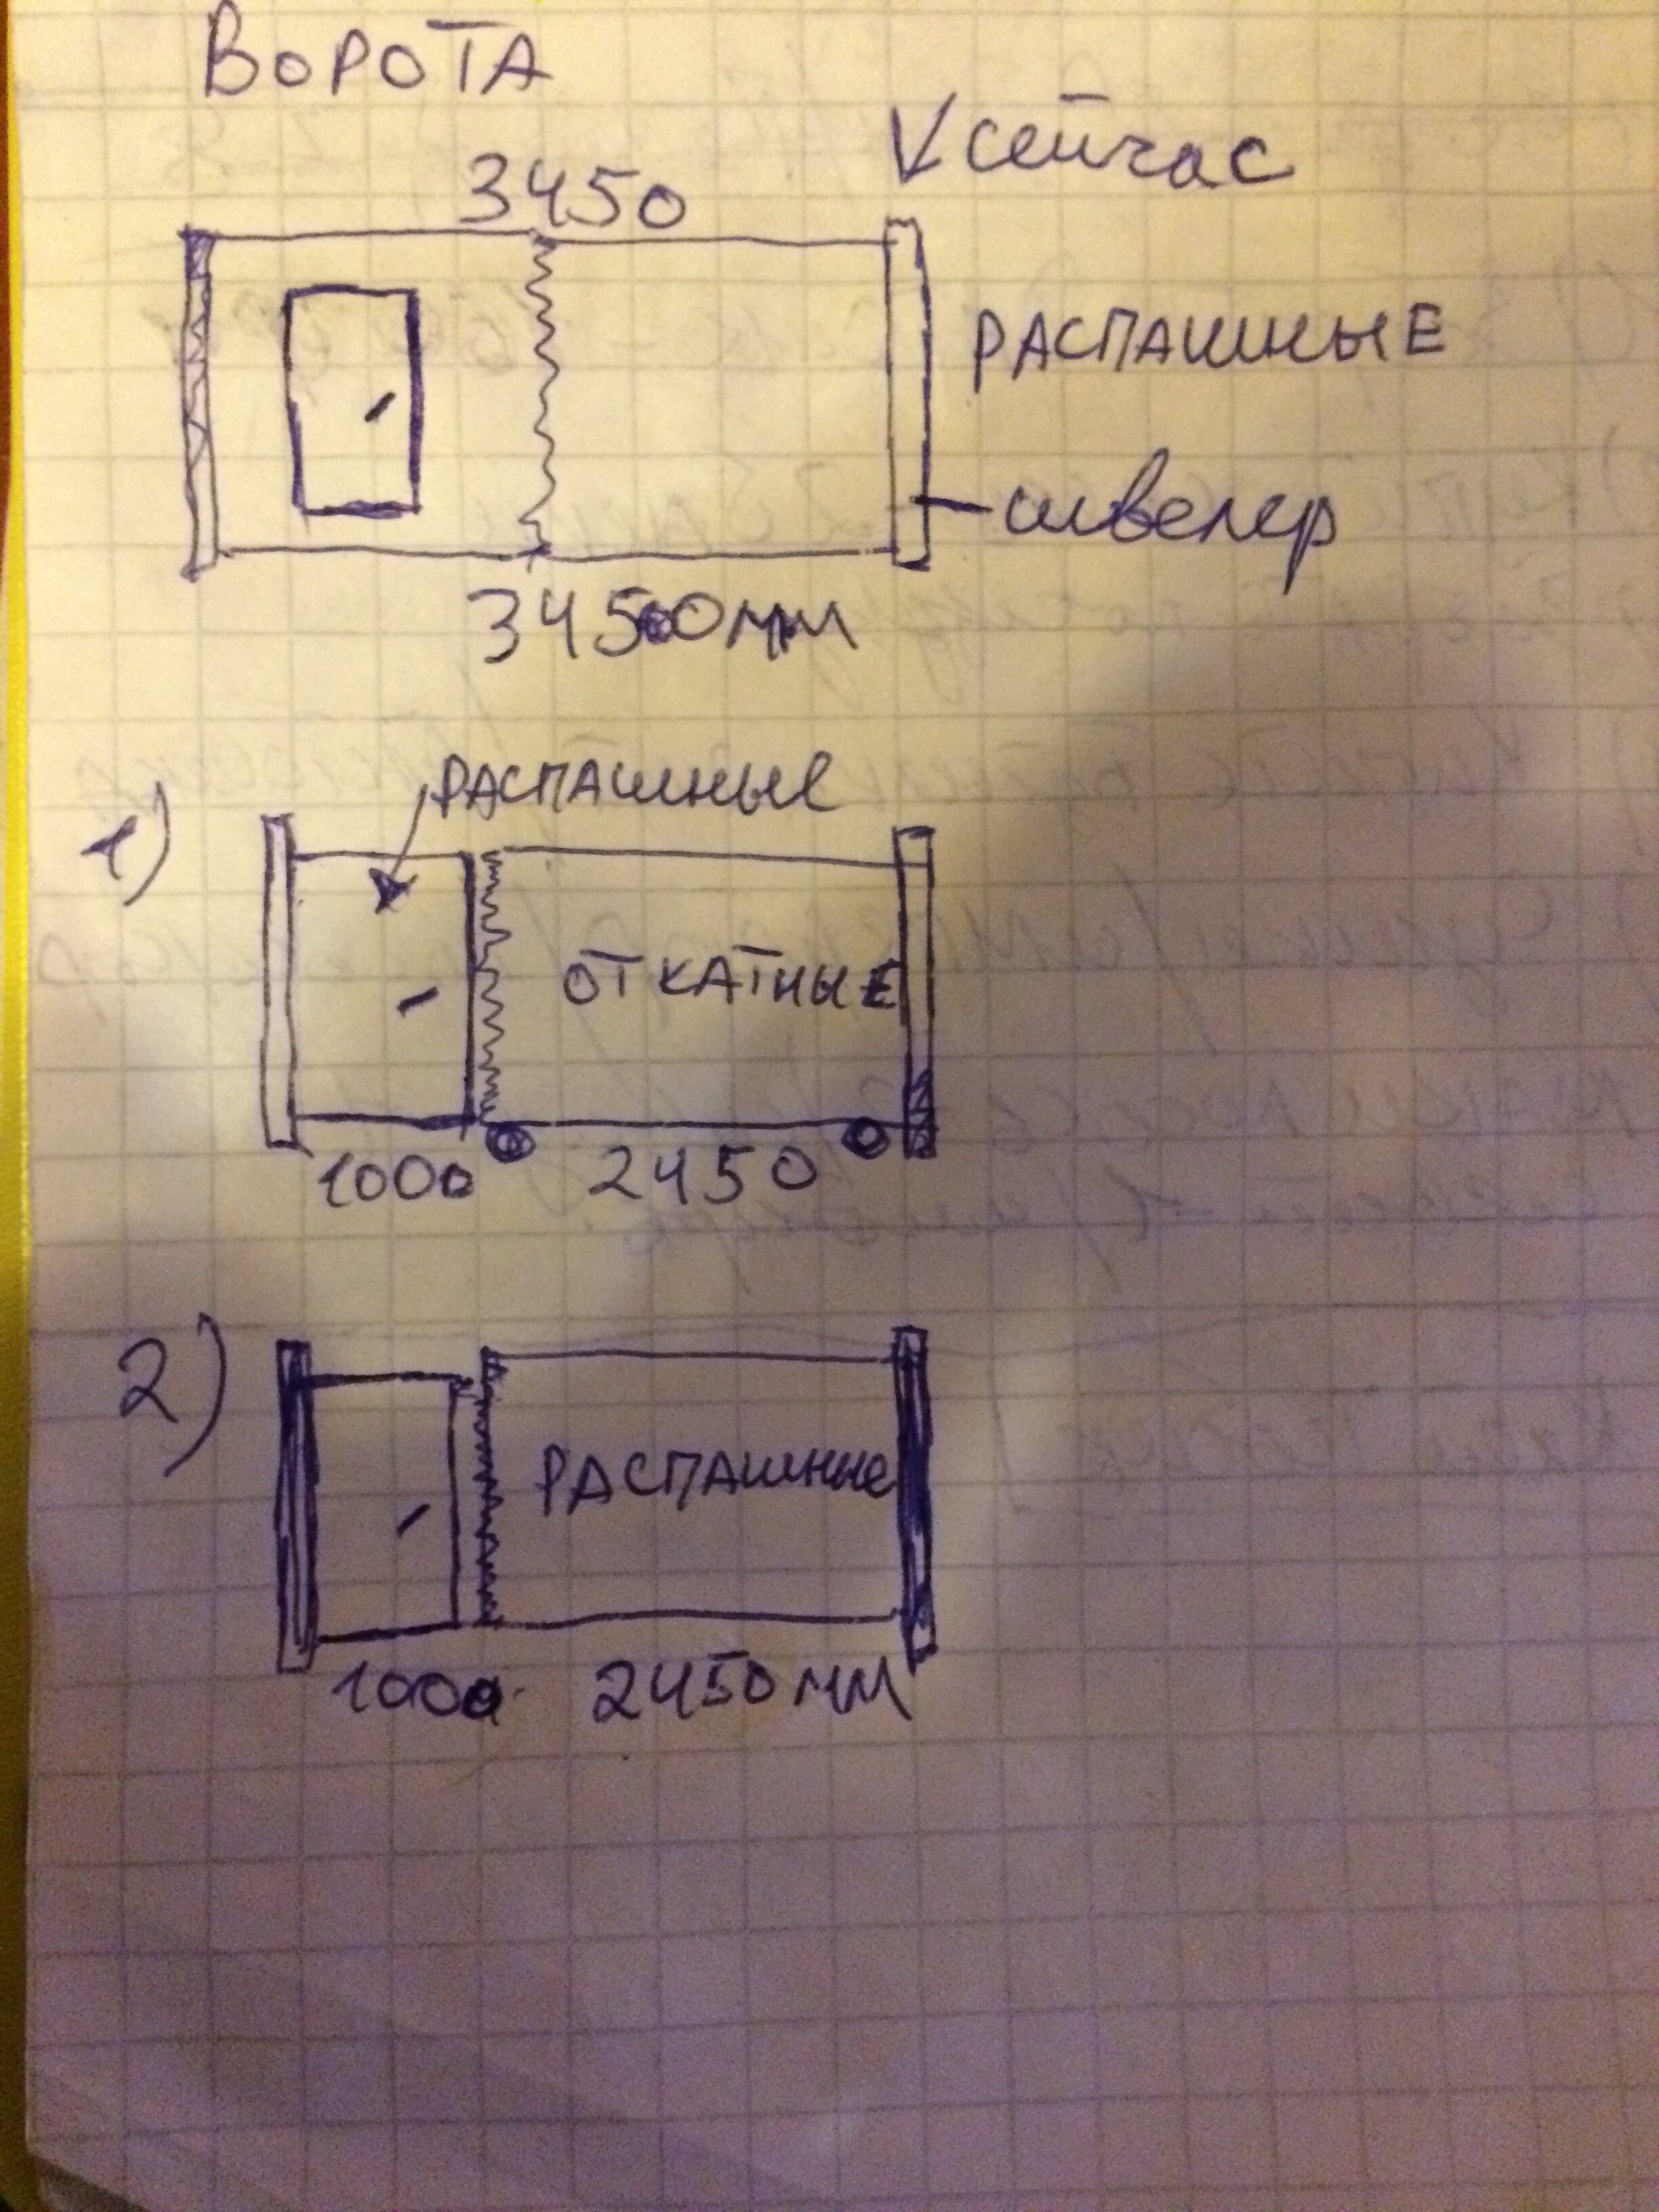 ВОРОТА
сейчас
3450
РАСПАШНЫЕ
швелер
3450мм
1)
РАСПАШНЫЕ
ОТКАТНЫЕ
1000
2450
2)
РАСПАШНЫЕ
1000
2450мм